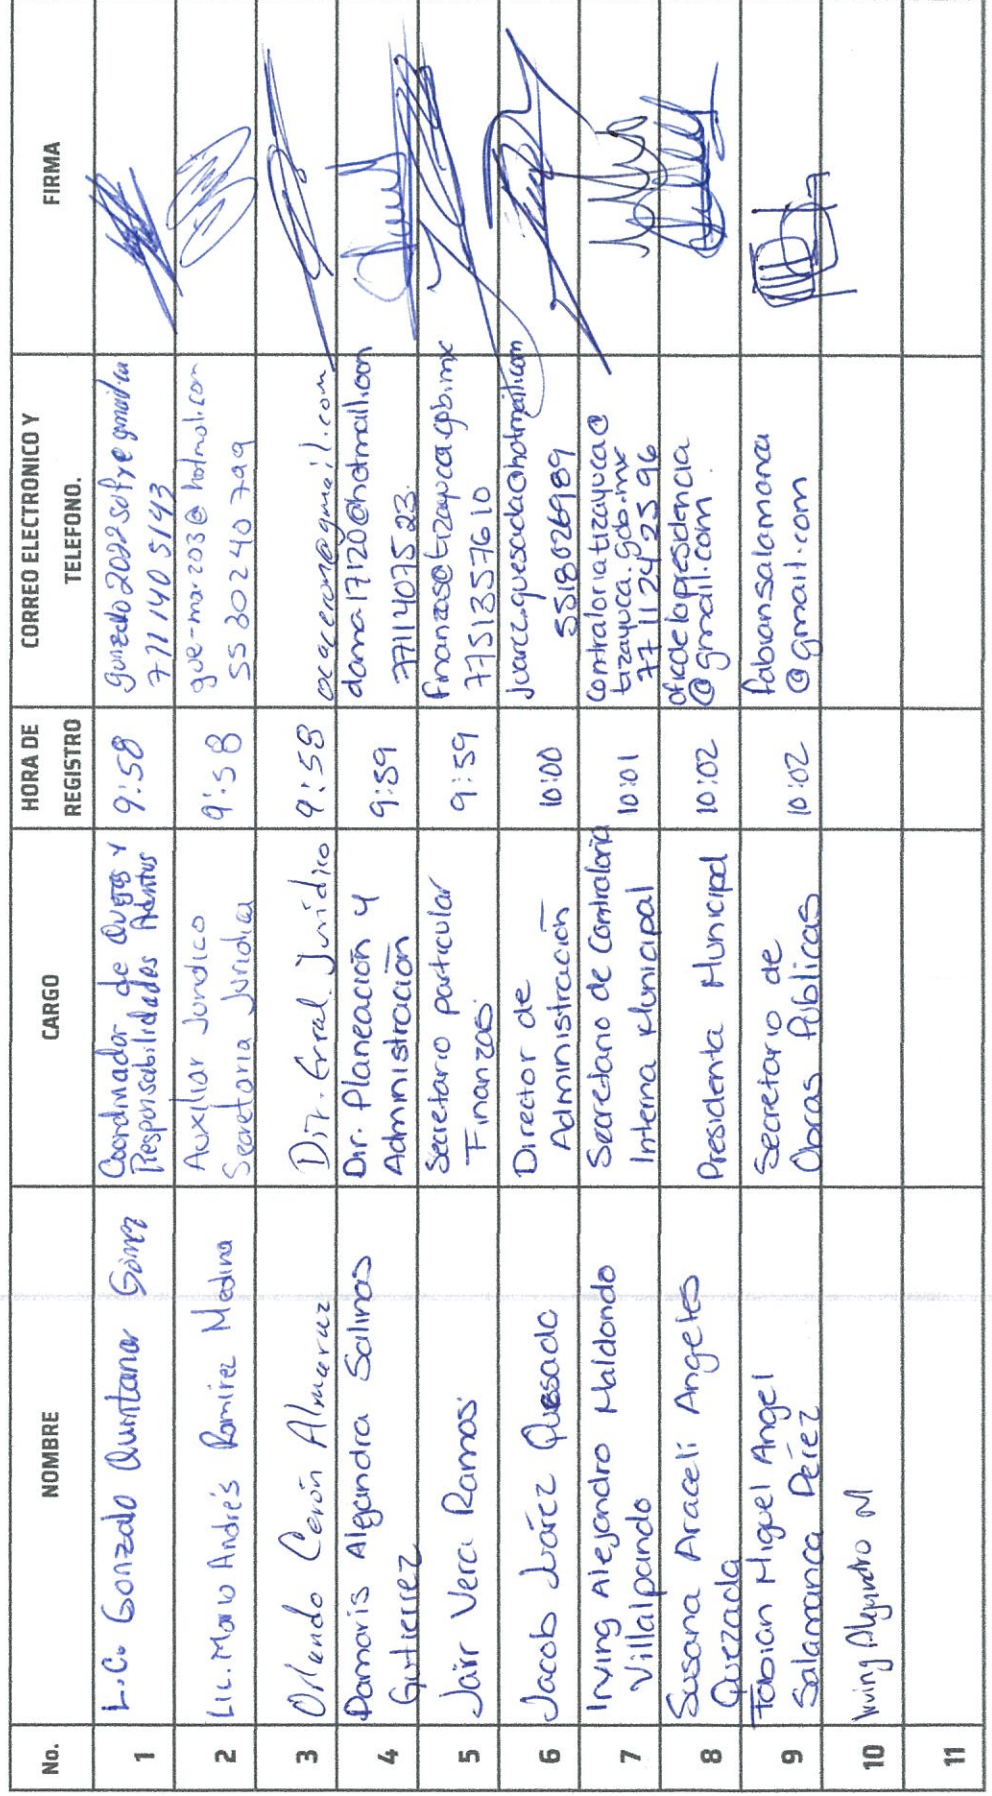 No.
NOMBRE
CARGO
HORA DE
REGISTRO
CORREO ELECTRONICO Y
TELEFONO.
FIRMA
1
L.C. Gonzalo Quintana Gómez
Coordinador de Quejas y
Responsabilidades Admtvas
9:58
771 140 5143
2
Lic. Mario Andrés Ramírez Medina
Auxiliar Jurídico
Secretaria Juridica
9:58
gue-mar203@hotmail.com
55 302 40 799
3
Orlando Cerón Almaraz
Dir. Gral. Jurídico
9:58
ocaceron@gmail.com
4
Damaris Alejandra Salinas
Gutierrez
Dir. Planeación y
Administración
9:59
dama17120@hotmail.com
7711407523.
5
Jair Vera Ramos
Secretario particular
Finanzas
9:59
finanzas@tizayuca.gob.mx
7751357610
6
Jacob Juárez Quesada
Director de
Administración
10:00
juarez.quesada@hotmail.com
5518026989
7
Irving Alejandro Maldonado
Villalpando
Secretario de Contraloria
Interna Municipal
10:01
contraloriatizayuca@
tizayuca.gob.mx
77 1124 25 96
8
Susana Araceli Angeles
Quezada
Presidenta Municipal
10:02
oficdelapresidencia
@gmail.com
9
Fabian Miguel Angel
Salamanca Pérez
Secretario de
Obras Públicas
10:02
fabiansalamanca
@gmail.com
10
Irving Alejandro M
11